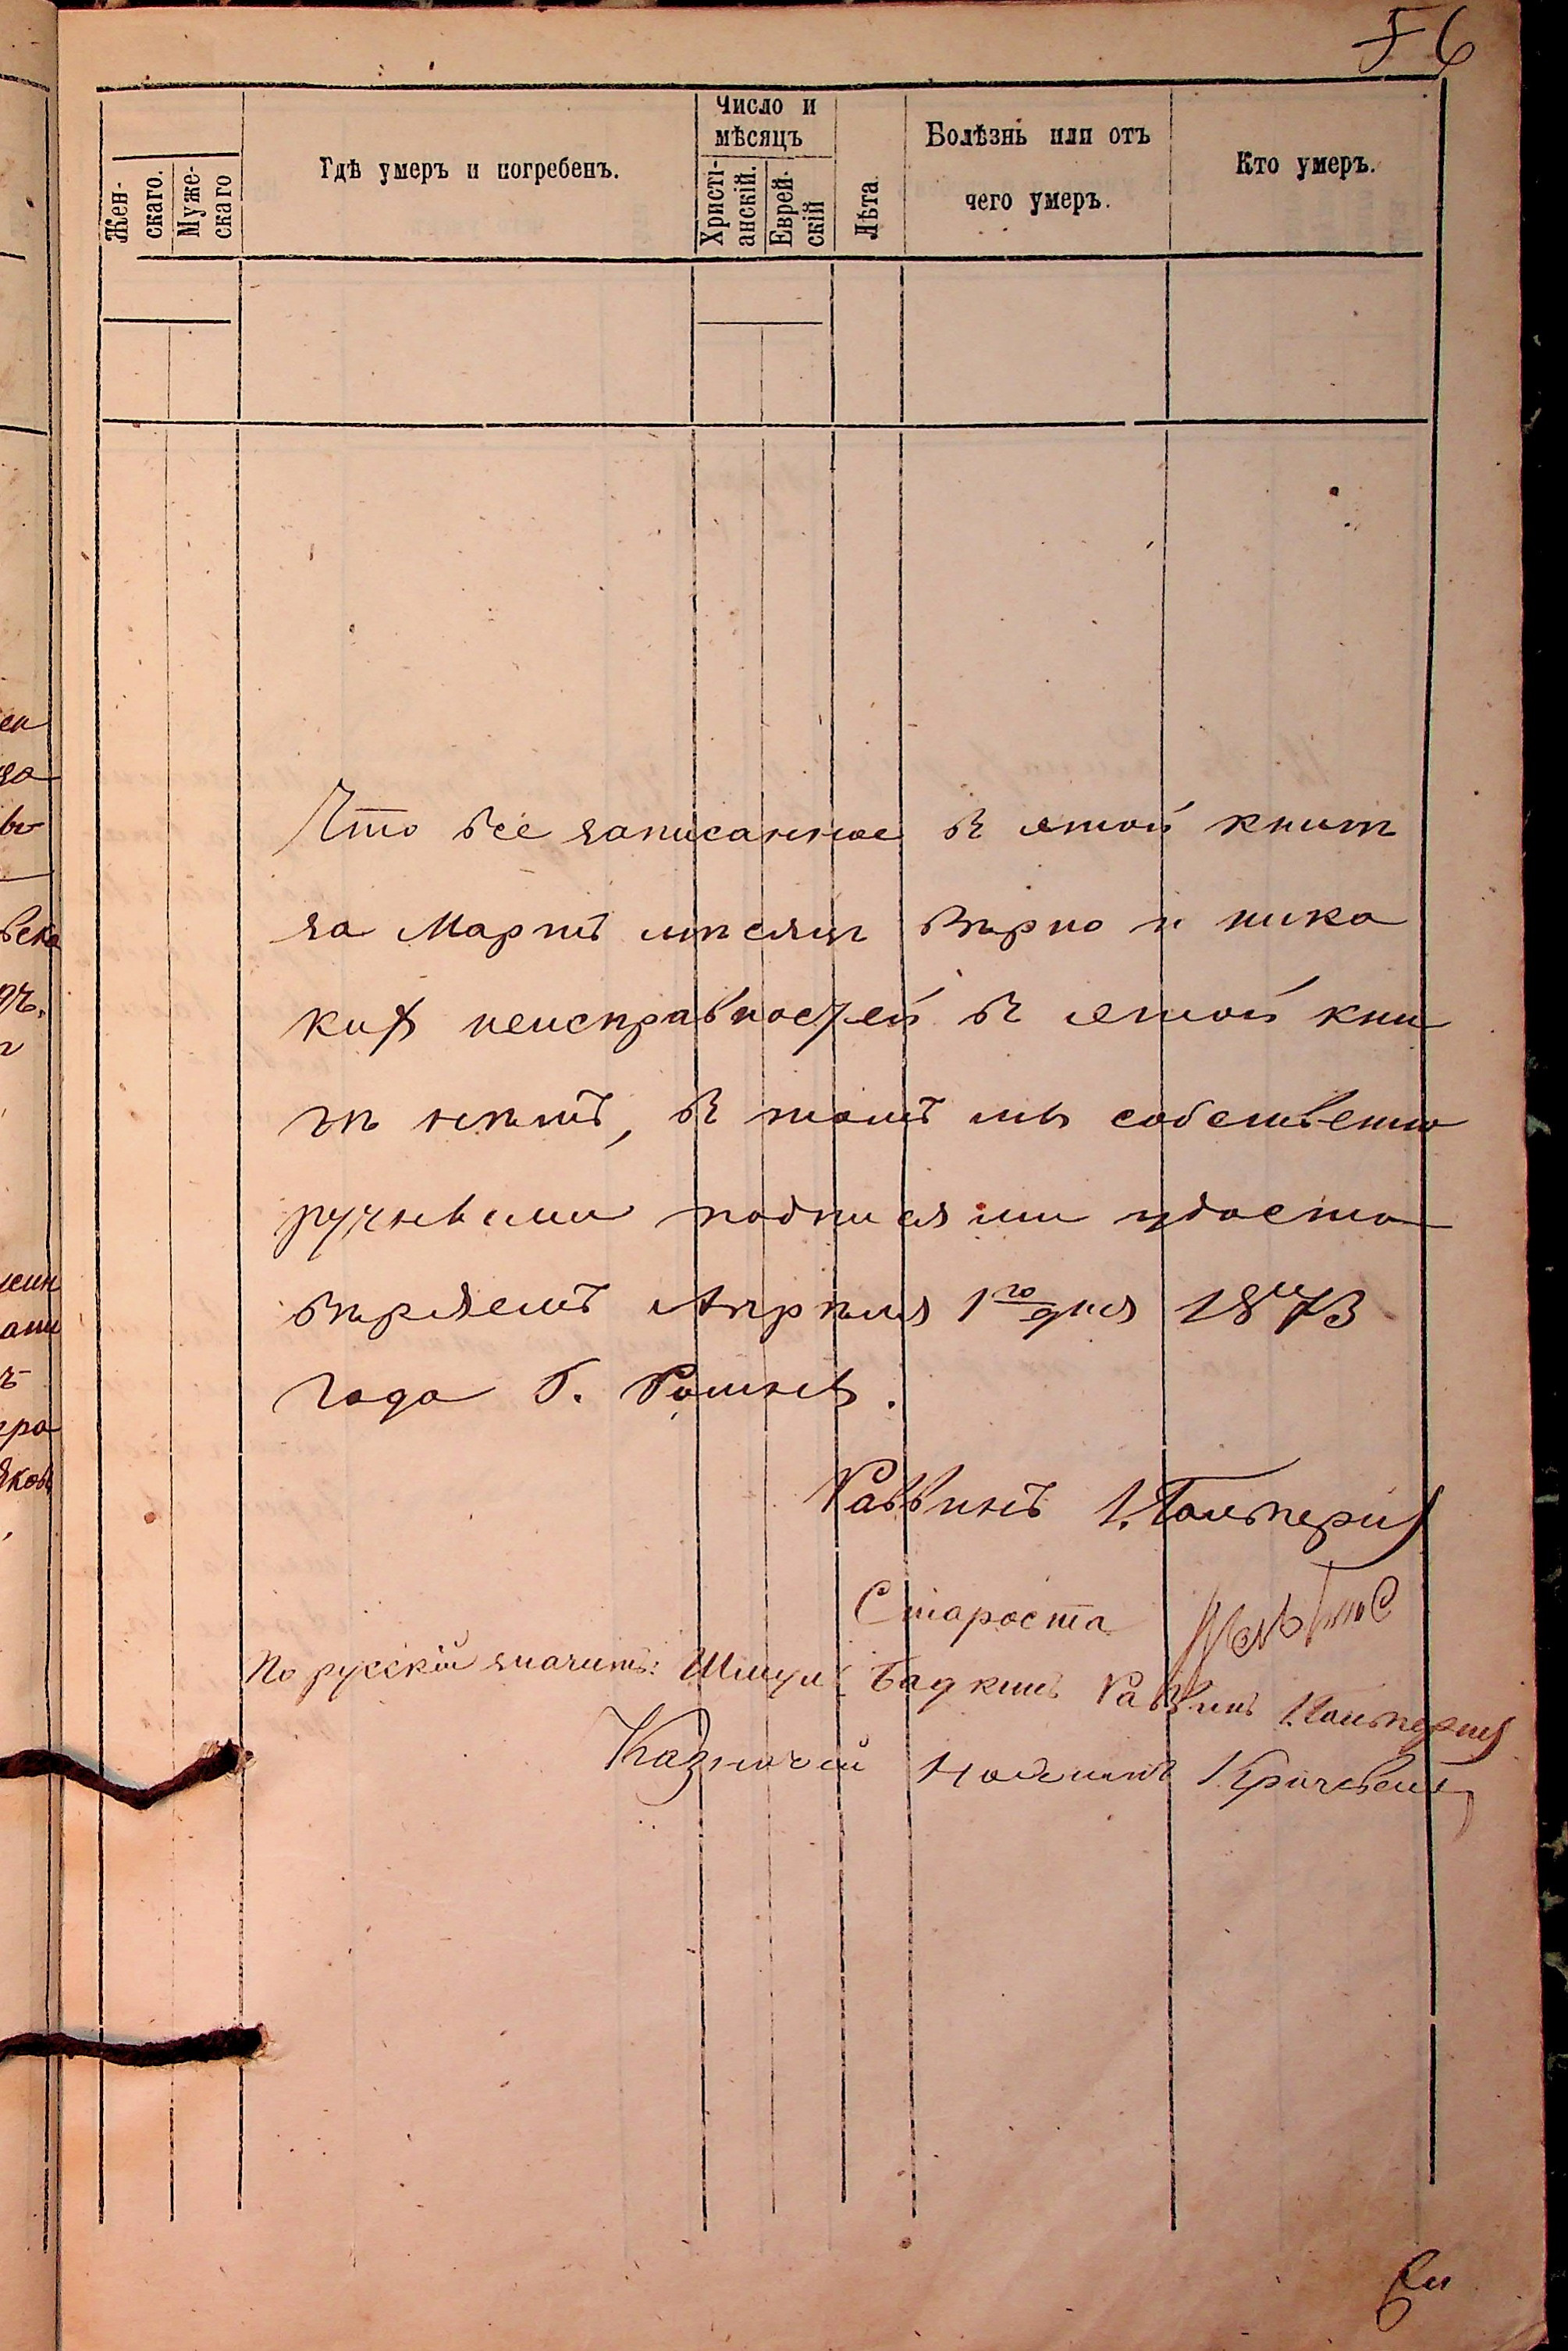 56
Жен-
скаго.
Муже-
скаго
Гдѣ умеръ и погребенъ.
Число и
мѣсяцъ
Христі-
анскій.
Еврей-
скій
Лѣта
Болѣзнь или отъ
чего умеръ.
Кто умеръ.
Что все записанное въ этой книгѣ
за Мартъ мѣсяцъ вѣрно и ника
кихъ неисправностей въ этой кни
гѣ нѣтъ, въ томъ мы собственно
ручными подписями удосто
вѣряемъ Апрѣля 1го дня 1873
года Г. Ромны.
Раввинъ І.
Староста
По русскій значитъ: Шмул Раввинъ І.
Казначей